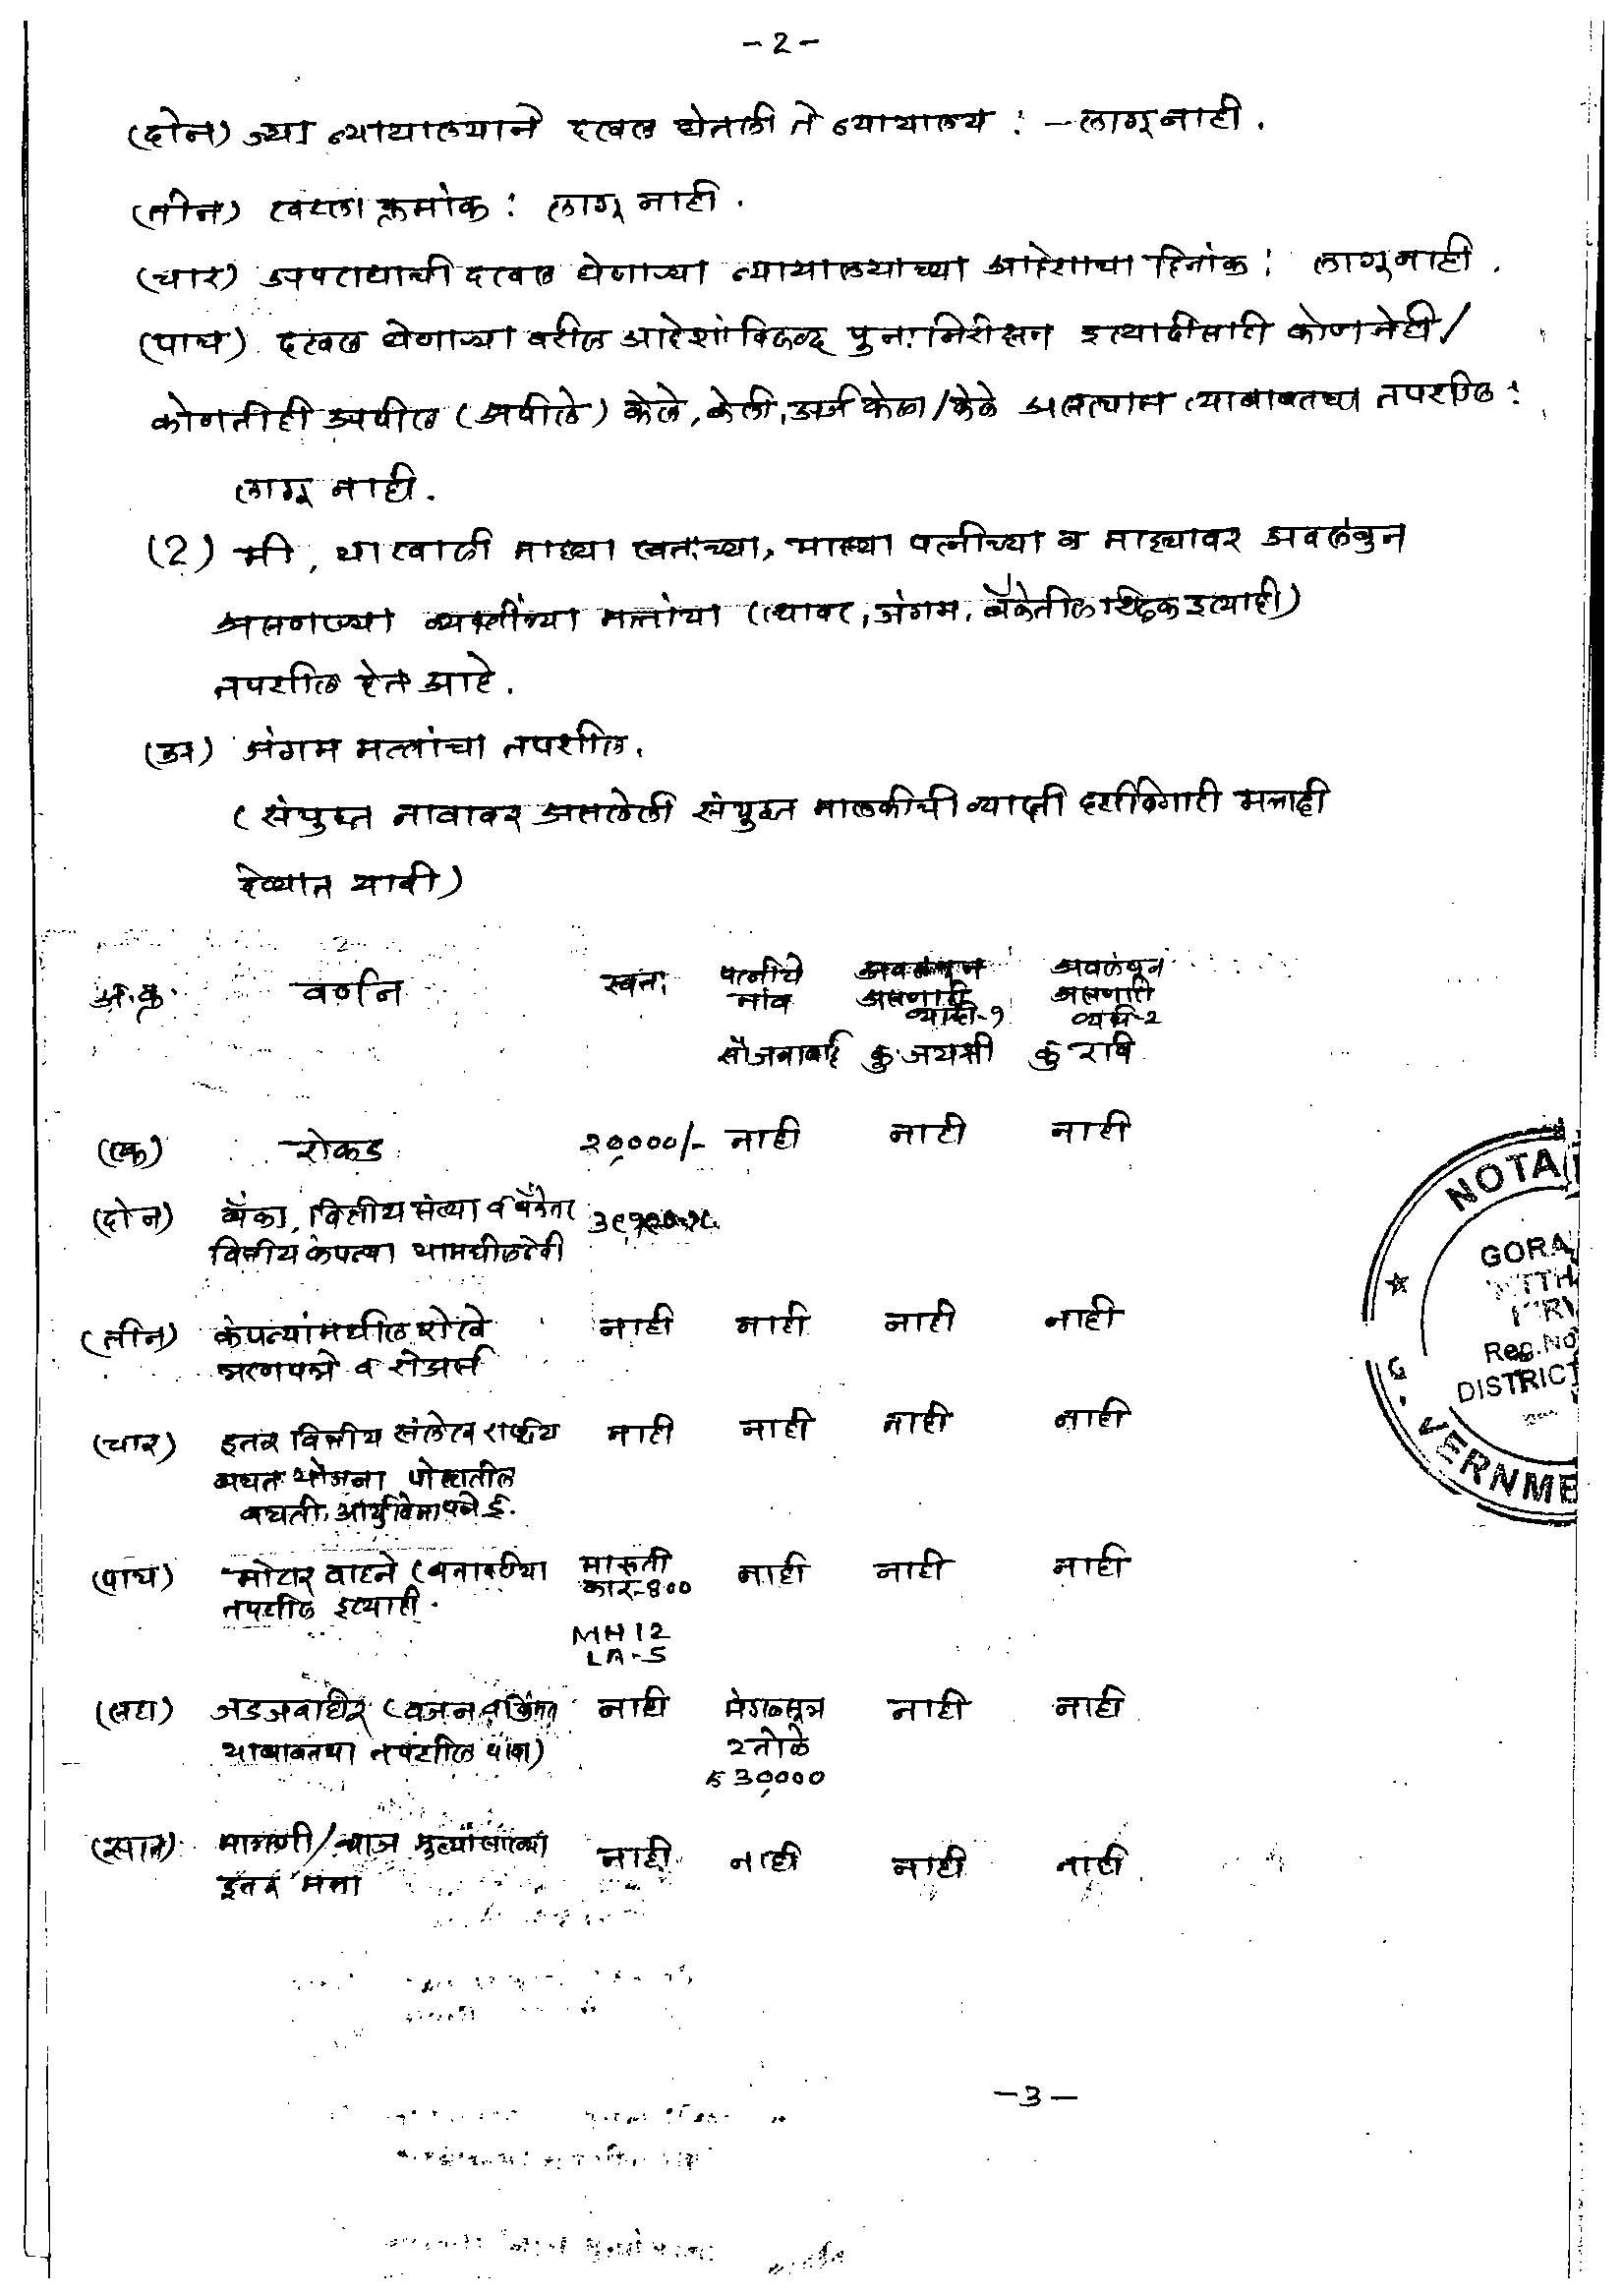 -2-
(दोन) ज्या न्यायालयाने दखल घेतली ते न्यायालय : - लागू नाही.
(तीन) खटला क्रमांक : लागू नाही.
(चार) अपराधाची दखल घेणाऱ्या न्यायालयाच्या आदेशाचा दिनांक : लागू नाही.
(पाच) दखल घेणाऱ्या वरील आदेशांविरुद्ध पुनःनिरीक्षन इत्यादीसाठी कोणतेही/
कोणतीही अपील (अपीले) केले, केली, अर्ज केला/केले असल्यास त्याबाबतचा तपशील :
लागू नाही.
(2) मी, या खाली माझ्या स्वतःच्या, माझ्या पत्नीच्या व माझ्यावर अवलंबुन
असणाऱ्या व्यक्तींच्या मत्तांचा (स्थावर, जंगम, बँकेतील शिल्लक इत्यादी)
तपशील देत आहे.
(अ) जंगम मत्तांचा तपशील.
(संयुक्त नावावर असलेली संयुक्त मालकीची व्याप्ती दर्शविणारी मत्ताही
देण्यात यावी)
अ.क्र. वर्णन स्वतः पत्नीचे अवलंबून अवलंबून
नांव असणारी असणारी
व्यक्ती-१ व्यक्ती-2
कु. जयश्री कु रवि
(एक) रोकड २०,०००/- नाही नाही नाही
(दोन) बँका, वित्तीय संस्था व बँकेतर
वित्तीय कंपन्या यामधील ठेवी
(तीन) कंपन्यांमधील रोखे नाही नाही नाही नाही
ऋणपत्रे व शेअर्स
(चार) इतर वित्तीय संलेख राष्ट्रीय नाही नाही नाही नाही
बचत योजना पोस्टातील
बचती, आयुर्विमा पत्रे ई.
(पाच) मोटार वाहने (बनावटीचा मारुती नाही नाही नाही
तपशील इत्यादी. कार-८००
MH12
LA-5
(सहा) जडजवाहीर (वजन व किंमत नाही मंगळसूत्र नाही नाही
याबाबतचा तपशील द्यावा) 2 तोळे
३०,०००
(सात) मागणी/व्याज मुल्यांसारख्या नाही नाही नाही नाही
इतर मत्ता
NOTA
GORA
Reg.No
DISTRICT
VERNME
-3-